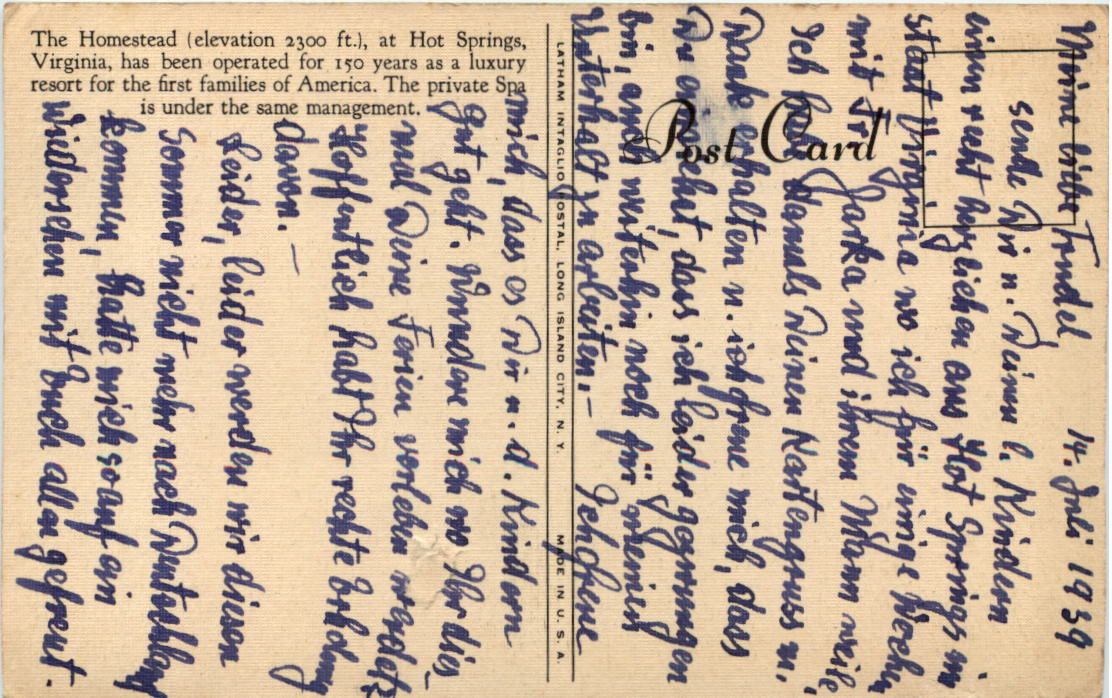 The Homestead (elevation 2300 ft.), at Hot Springs,
Virginia, has been operated for 150 years as a luxury
resort for the first families of America. The private Spa
is under the same management.
LATHAM INTAGLIO POSTAL, LONG ISLAND CITY, N. Y.
MADE IN U. S. A.
Post Card
14. Juli 1939
Meine liebe Trudel,
sende Dir u. Deinen l. Kindern
einen recht herzlichen aus Hot Springs im
Staat Virginia wo ich für einige Wochen
mit Frl. und ihrem Mann weile,
Ich hab damals Deinen Kartengruss m.
Dank erhalten u. ich freue mich, dass
Du ersiehst, dass ich leider gezwungen
bin, auch weiterhin noch für meinen
Unterhalt zu arbeiten. — Ich freue
mich, dass es Dir u. d. Kindern
gut geht. Wundere mich wo Ihr dies-
mal Deine Ferien verleben werdet.
Hoffentlich habt Ihr rechte Erholung
davon. —
Leider, leider werden wir diesen
Sommer nicht mehr nach Deutschland
kommen, hatte mich so auf ein
Wiedersehen mit Euch allen gefreut.